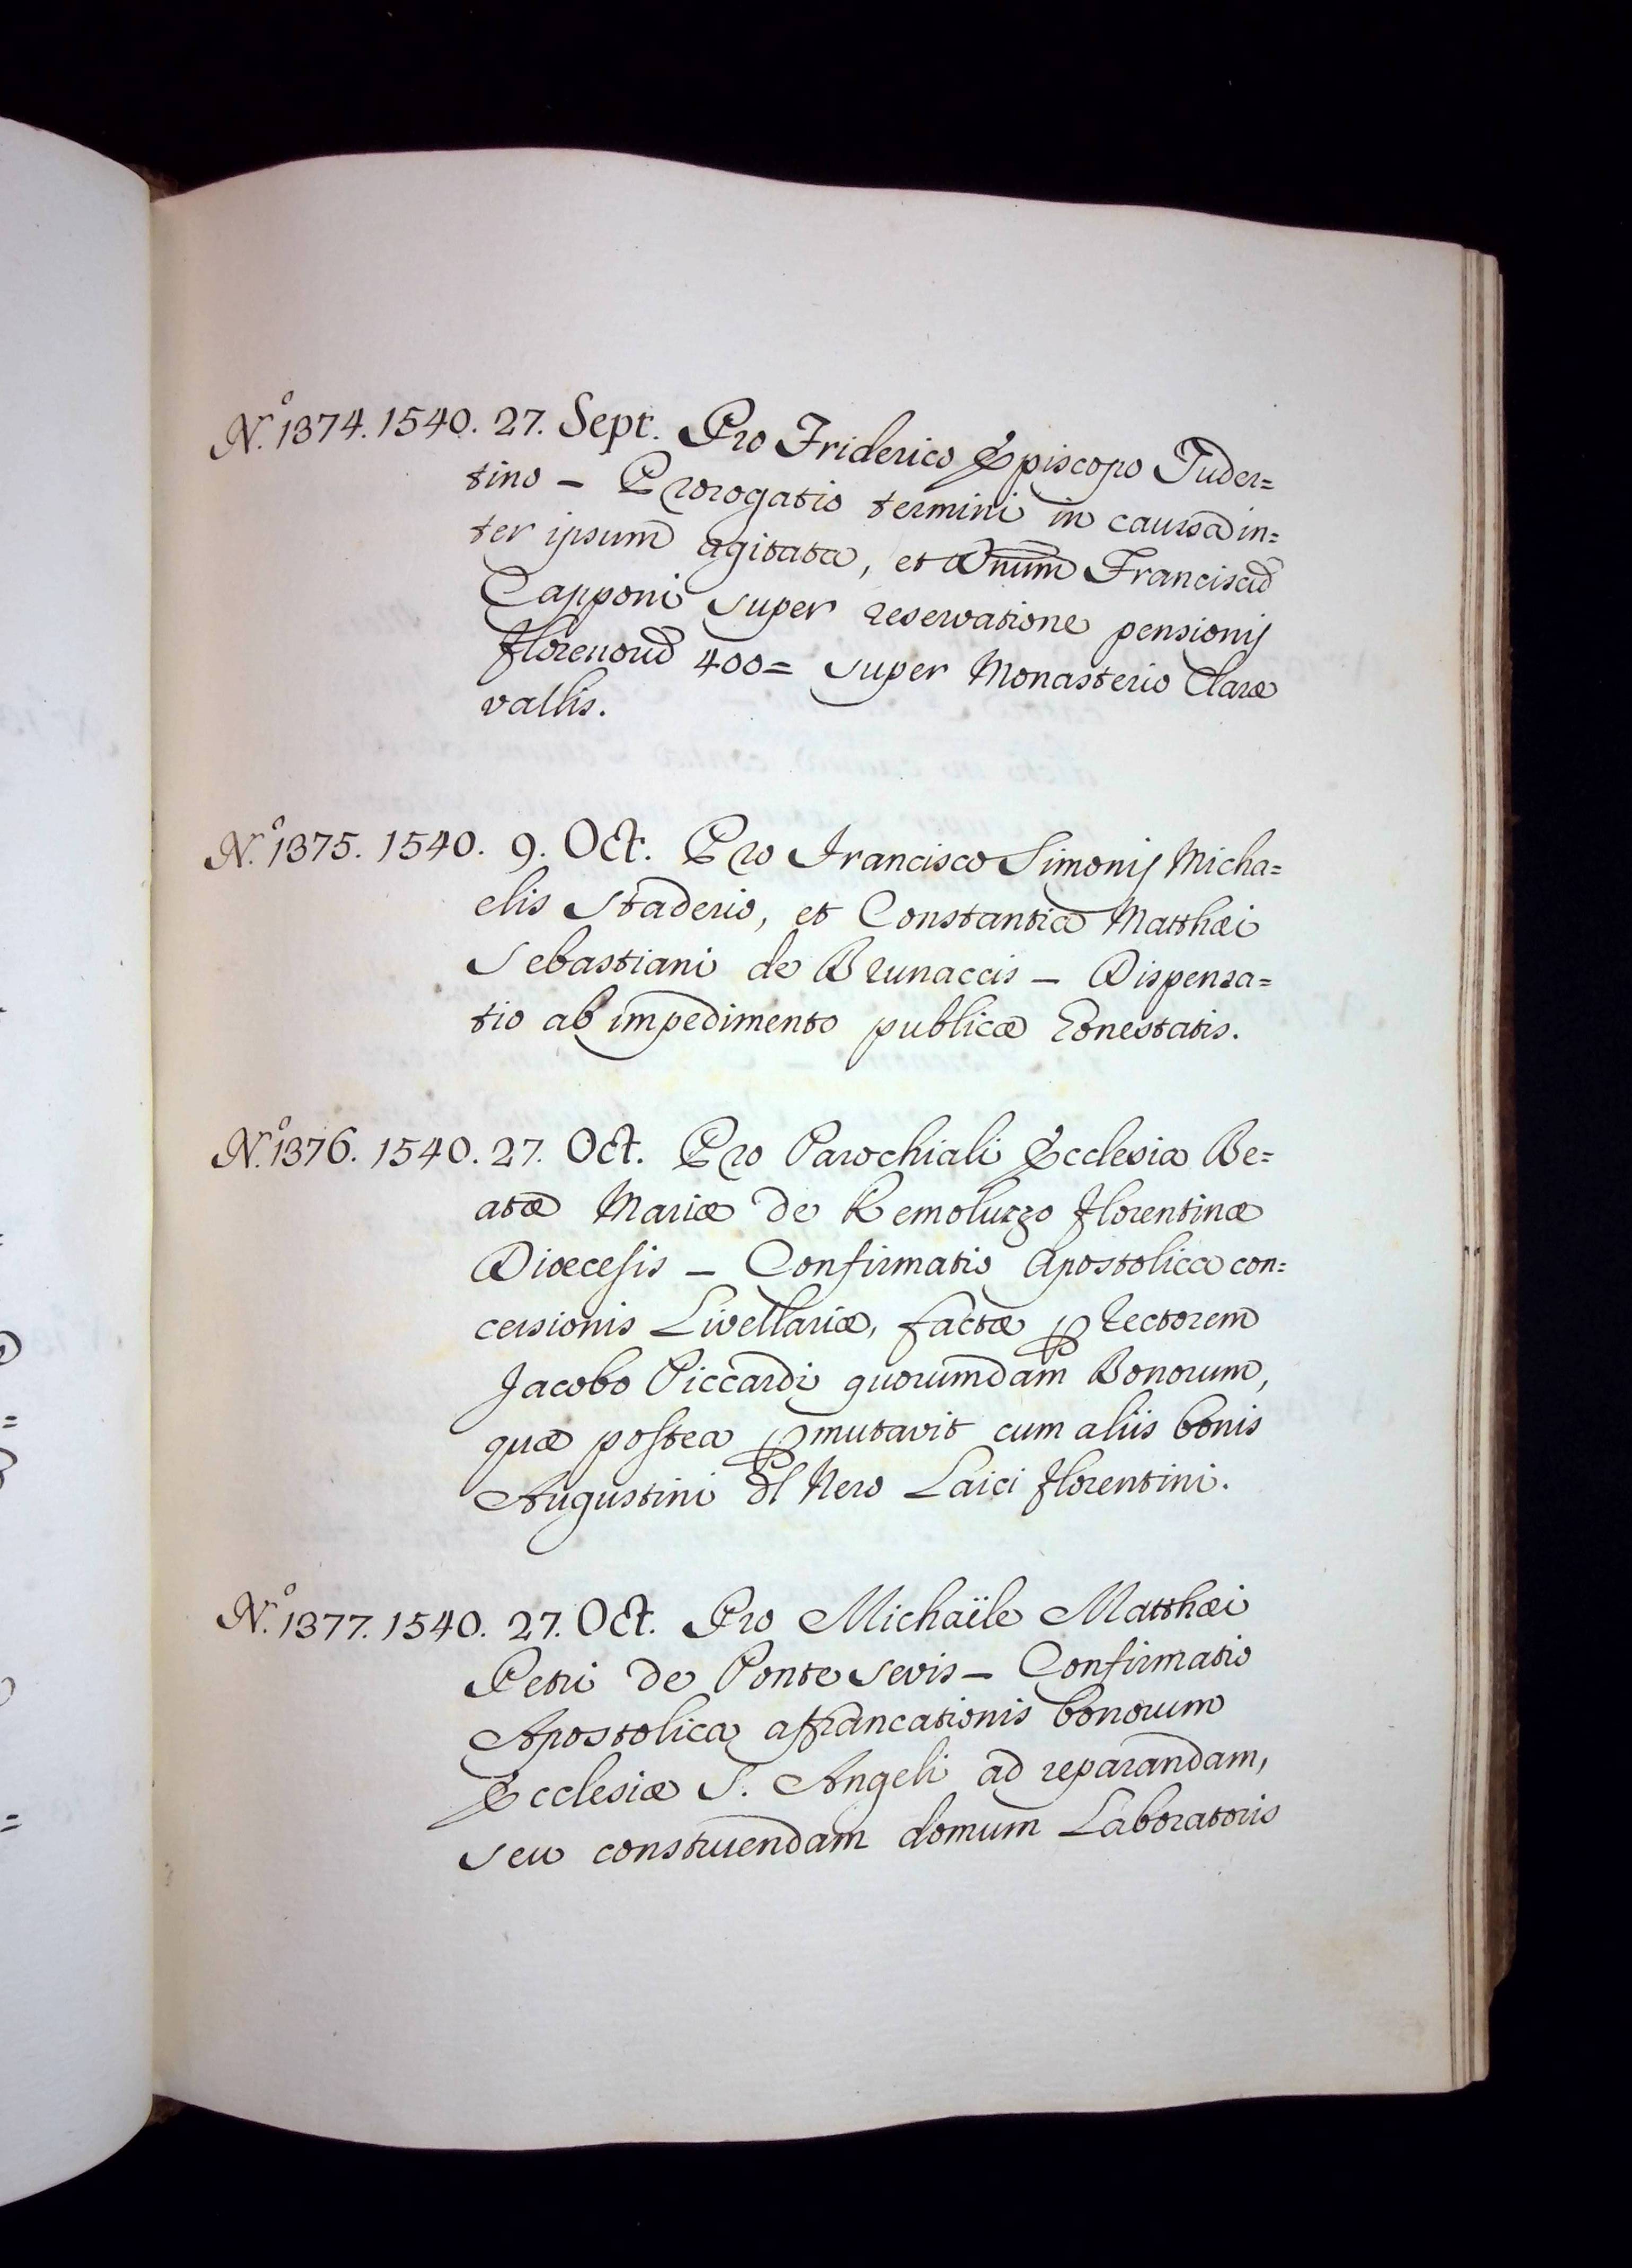 N.º 1374. 1540. 27. Sept. Pro Friderico Episcopo Tuder=
tino – Prorogatio termini in caussa in=
ter ipsum agitata, et Dnum Franciscu͞
Capponi super reservatione pensionis
florenoru͞ 400= super Monasterio Claræ
vallis.
N.º 1375. 1540. 9. Oct. Pro Francisco Simonis Micha=
elis Staderio, et Constantia Matthæi
Sebastiani de Brunaccis – Dispensa=
tio ab impedimento publicæ honestatis.
N.º 1376. 1540. 27. Oct. Pro Parochiali Ecclesia Be=
atæ Mariæ de Remoluzzo florentinæ
Diœcesis – Confirmatio Apostolica con=
cessionis Livellariæ, factæ ꝑ Rectorem
Jacobo Piccardi quorumdam Bonorum,
quæ postea ꝑmutavit cum aliis bonis
Augustini dl Nero Laici florentini.
N.º 1377. 1540. 27. Oct. Pro Michaële Matthæi
Petri de Ponte sevis – Confirmatio
Apostolica affrancationis bonorum
Ecclesiæ S. Angeli ad reparandam,
seu construendam domum Laboratoris